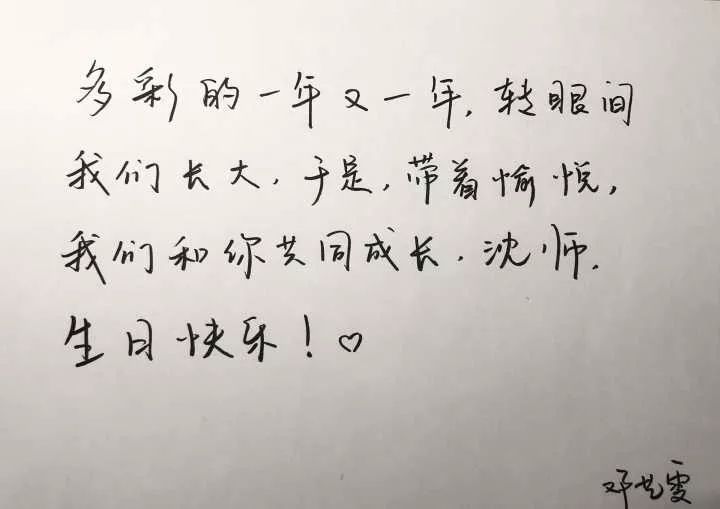 多彩的一年又一年,转眼间
我们长大.于是,带着愉悦,
我们和你共同成长.沈师.
生日快乐!♡
邓雯